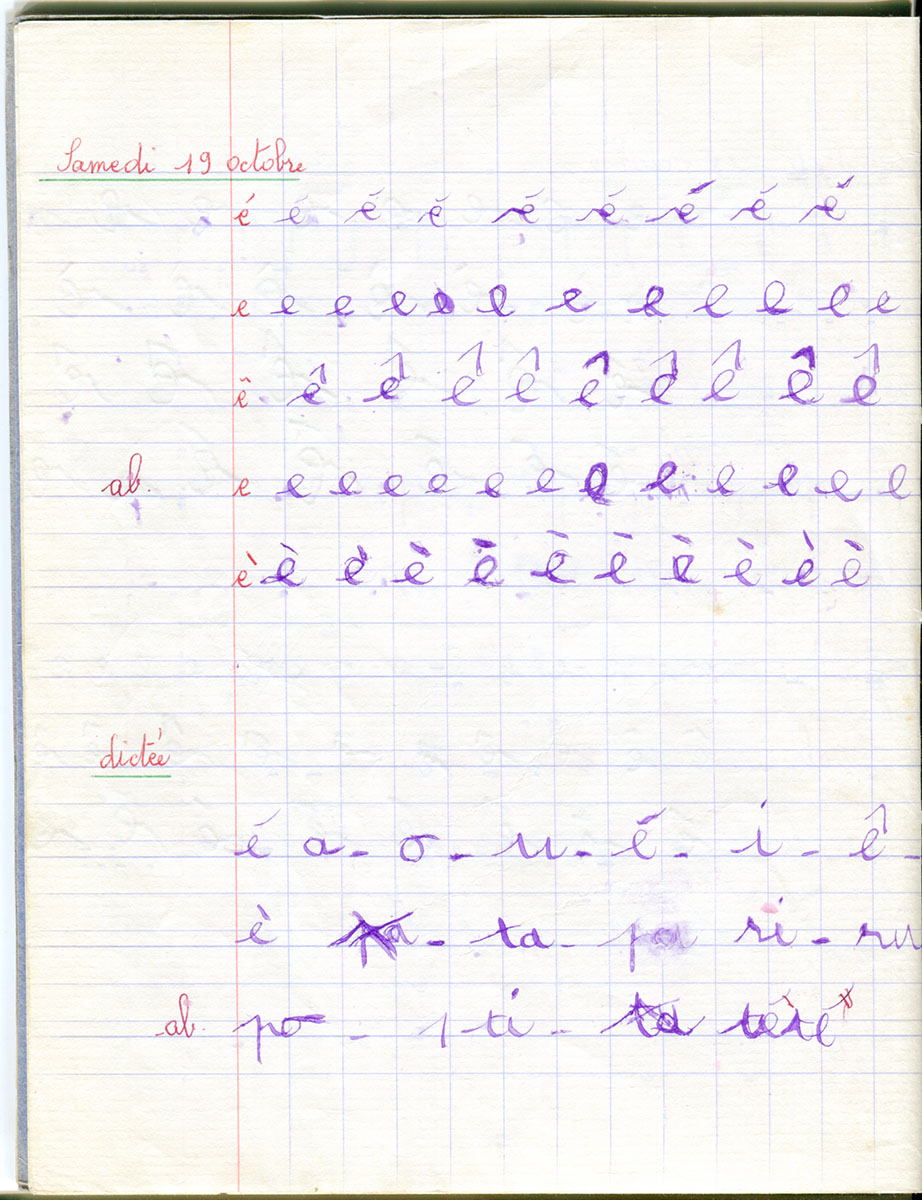 Samedi 19 octobre
é é é é é é é é é
e e e e e e e e e e e e
ê ê ê ê ê ê ê ê ê ê
ab. e e e e e e e e e e e e e
è è è è è è è è è è è
dictée
é a - o - u - é - i - ê -
è - ta - ri - ru
ab. po - ti -